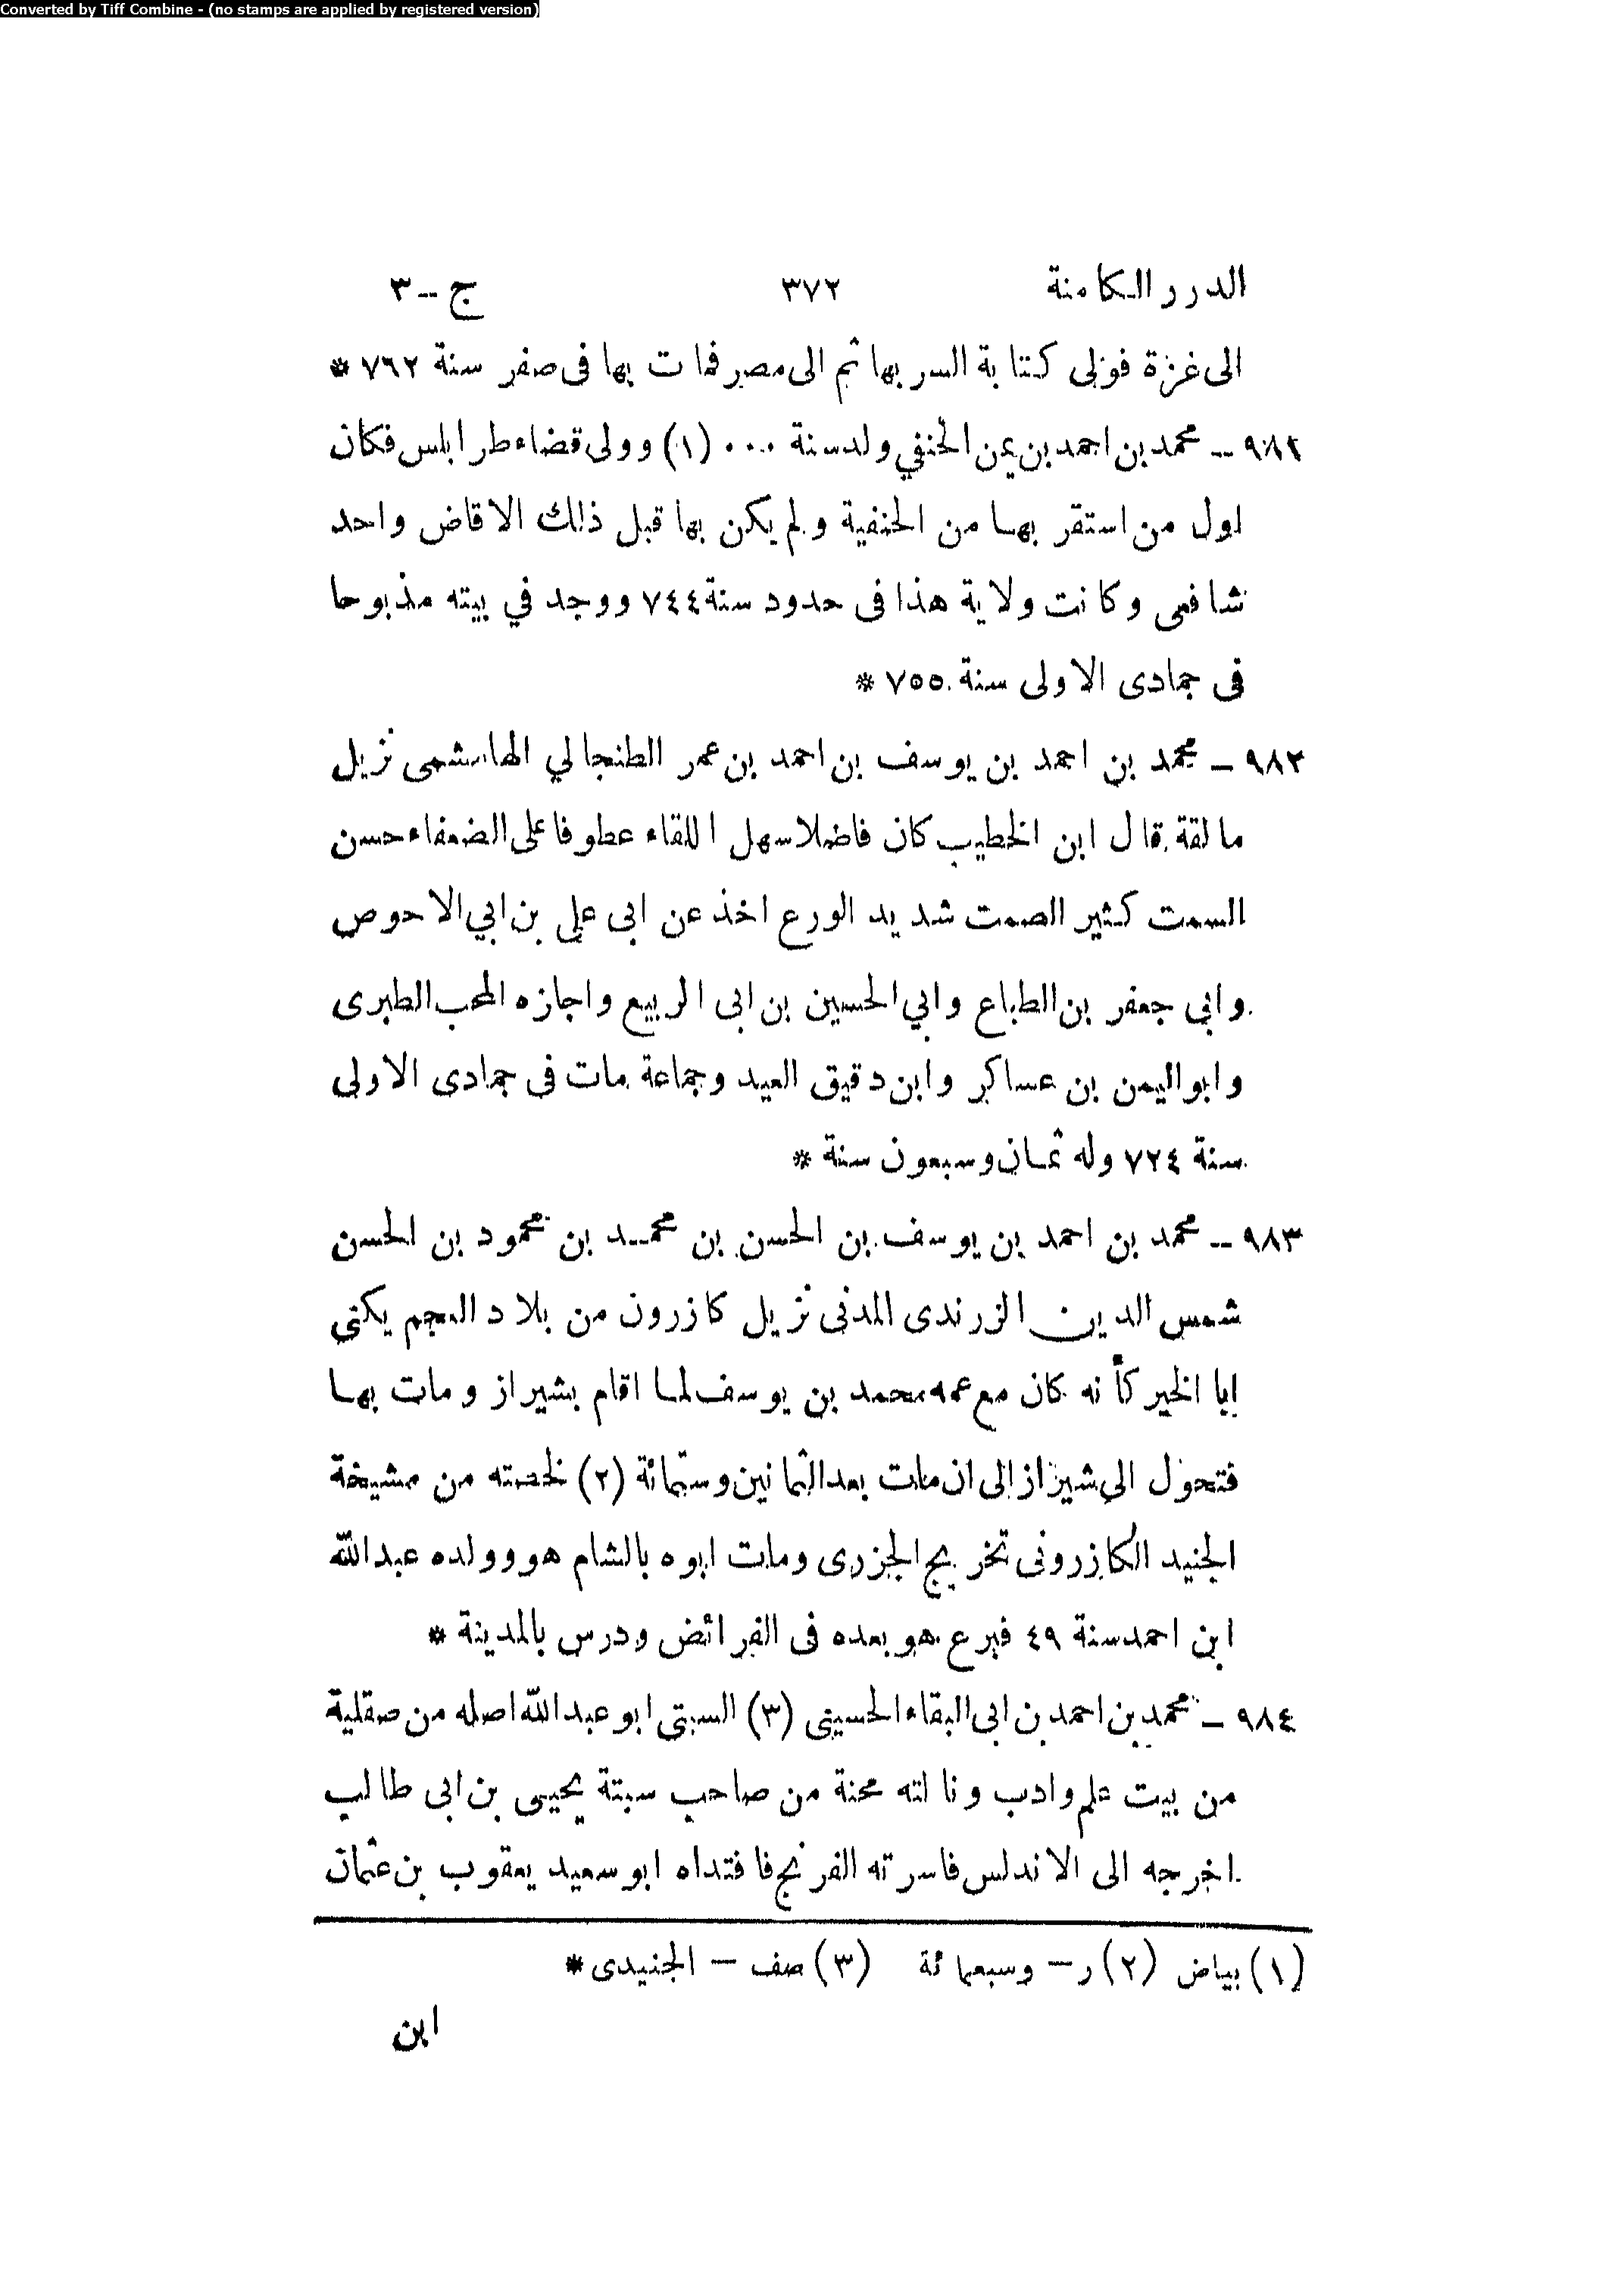 Converted by Tiff Combine - (no stamps are applied by registered version)
الدرر الكامنة ٣٧٢ ج-٣
الى غزة فولى كتابة السر بها ثم الى مصر فمات بها فى صفر سنة ٧٦٢ *
٩٨١ - محمد بن احمد بن يمن الحنفي ولد سنة ... (١) وولى قضاء طرابلس فكان
اول من استقر بها من الحنفية ولم يكن بها قبل ذلك الا قاض واحد
شافعى وكانت ولاية هذا فى حدود سنة ٧٤٤ ووجد في بيته مذبوحا
فى جمادى الاولى سنة ٧٥٥ *
٩٨٢ - محمد بن احمد بن يوسف بن احمد بن عمر الطنجالي الهاشمى نزيل
مالقة قال ابن الخطيب كان فاضلا سهل اللقاء عطوفا على الضعفاء حسن
السمت كثير الصمت شديد الورع اخذ عن ابى على بن ابي الاحوص
وابى جعفر بن الطباع وابي الحسين بن ابى الربيع واجازه المحب الطبرى
وابو اليمن بن عساكر وابن دقيق العيد وجماعة مات فى جمادى الاولى
سنة ٧٢٤ وله ثمان وسبعون سنة *
٩٨٣ - محمد بن احمد بن يوسف بن الحسن بن محمد بن محمود بن الحسن
شمس الدين الزرندى المدنى نزيل كازرون من بلاد العجم يكنى
ابا الخير كأنه كان مع عمه محمد بن يوسف لما اقام بشيراز ومات بها
فتحول الى شيراز الى ان مات بعد الثمانين وستمائة (٢) لخصته من مشيخة
الجنيد الكازرونى تخريج الجزرى ومات ابوه بالشام هو وولده عبد الله
ابن احمد سنة ٤٩ فبرع هو بعده فى الفرائض ودرس بالمدينة *
٩٨٤ - محمد بن احمد بن ابى البقاء الحسينى (٣) السبتى ابو عبد الله اصله من صقلية
من بيت علم وادب ونالته محنة من صاحب سبتة يحيى بن ابى طالب
اخرجه الى الاندلس فاسرته الفرنج فافتداه ابو سعيد يعقوب بن عثمان
(١) بياض (٢) ر- وسبعمائة (٣) صف - الجنيدى *
ابن